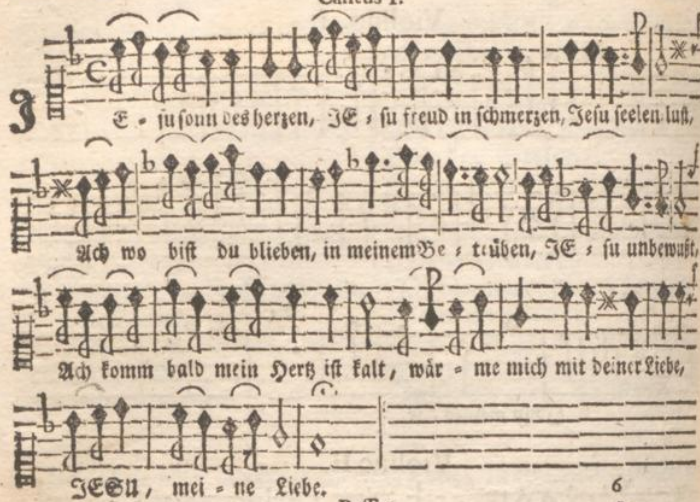 Cantus I.
JE - su sonn des herzen, JE - su freud in schmerzen, Jesu seelen lust,
Ach wo bist du blieben, in meinem Be - trüben, JE - su unbewußt,
Ach komm bald mein Hertz ist kalt, wär - me mich mit deiner Liebe,
JESU, mei - ne Liebe.
6